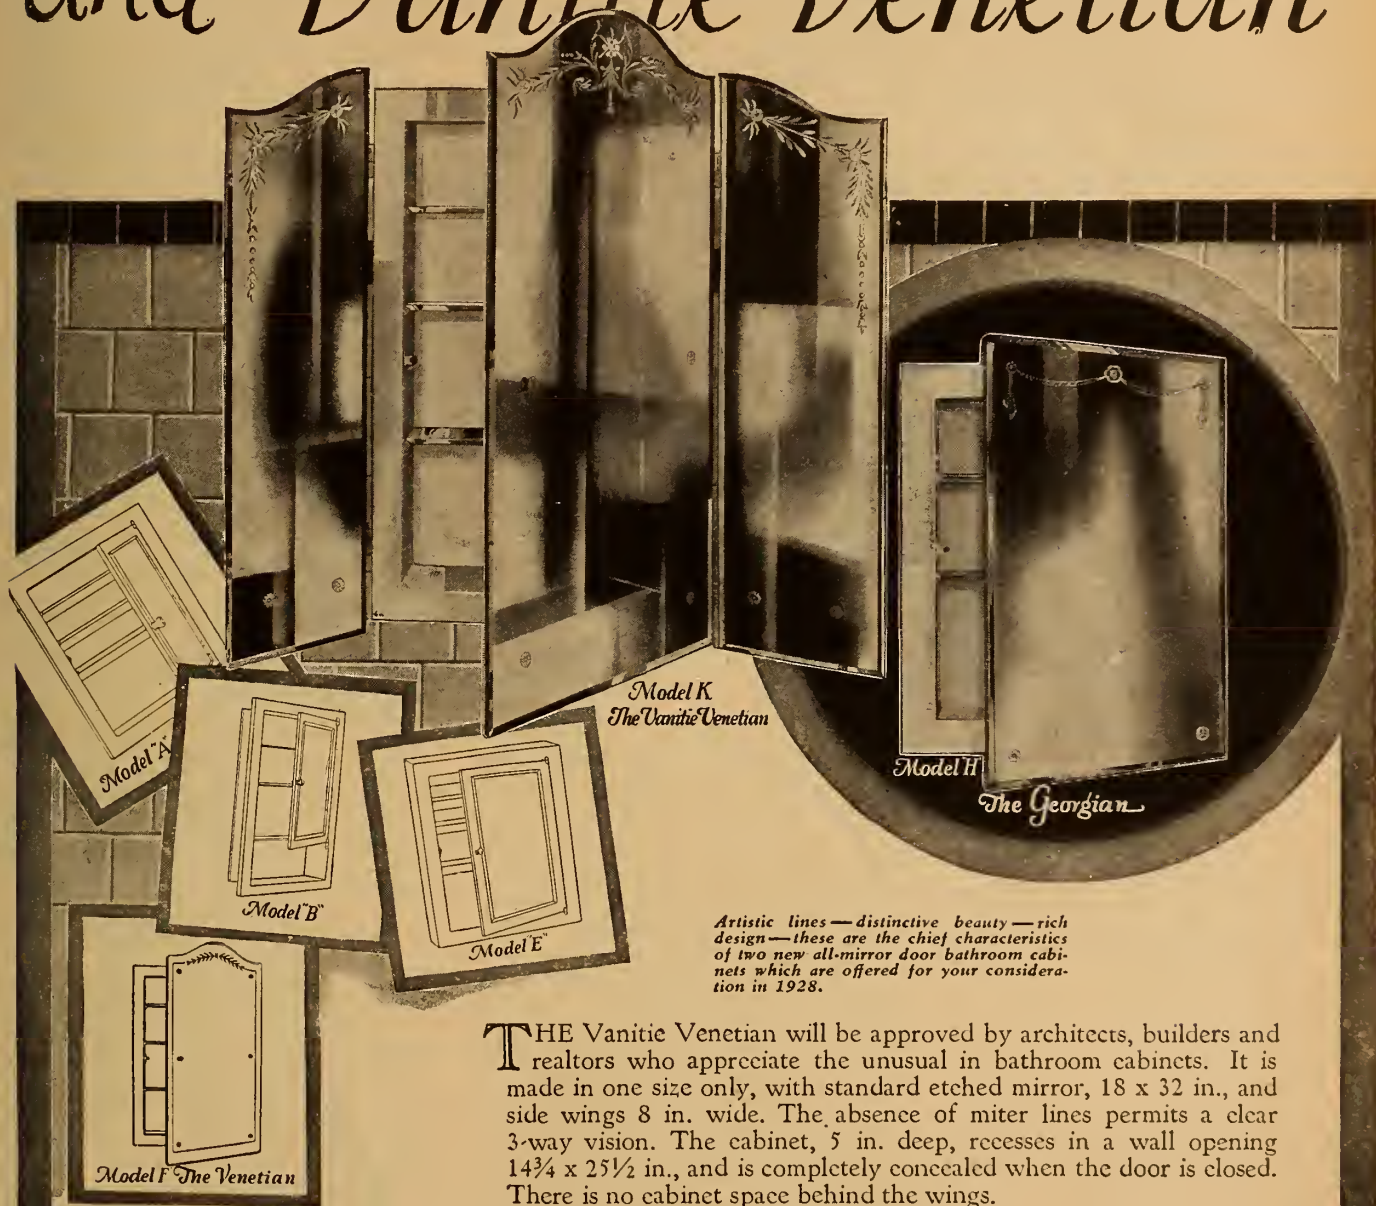 and Vanitie Venetian
Model K
The Vanitie Venetian
Model H
The Georgian
Model "A"
Model "B"
Model "E"
Model F The Venetian
Artistic lines — distinctive beauty — rich
design — these are the chief characteristics
of two new all-mirror door bathroom cabi-
nets which are offered for your considera-
tion in 1928.
THE Vanitie Venetian will be approved by architects, builders and
realtors who appreciate the unusual in bathroom cabinets. It is
made in one size only, with standard etched mirror, 18 x 32 in., and
side wings 8 in. wide. The absence of miter lines permits a clear
3-way vision. The cabinet, 5 in. deep, recesses in a wall opening
14¾ x 25½ in., and is completely concealed when the door is closed.
There is no cabinet space behind the wings.